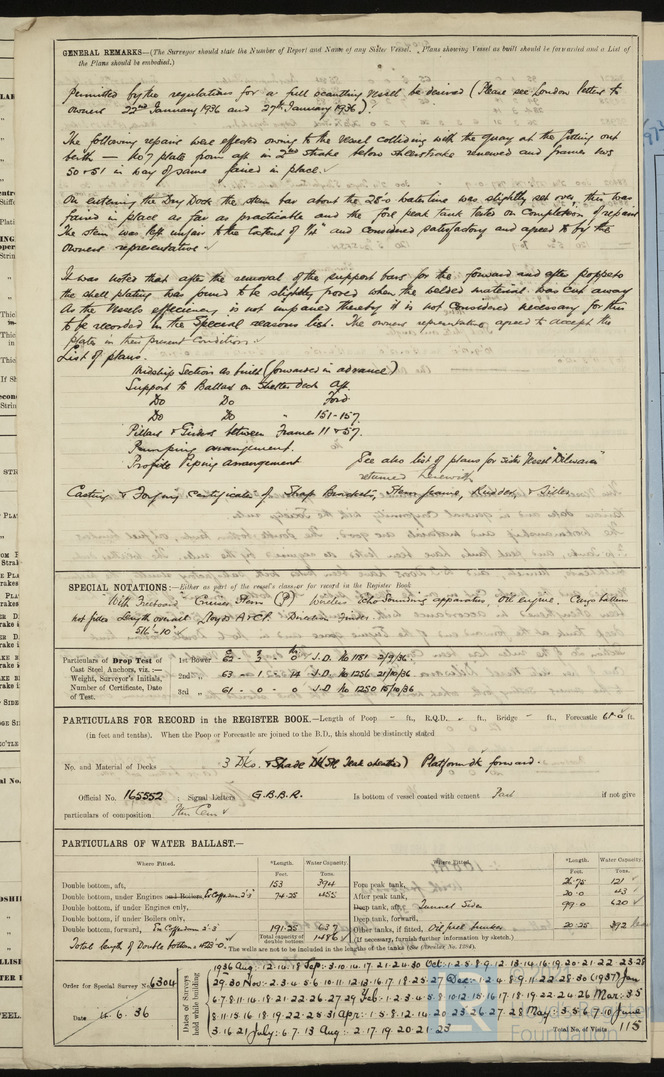 GENERAL REMARKS—(The Surveyor should state the Number of Report and Name of any Sister Vessel. Plans showing Vessel as built should be forwarded and a List of
the Plans should be embodied.)
permitted by the regulations for a full scantling vessel be desired (Please see London letters to
owners 22nd January 1936 and 27th January 1936)?
The following repairs were effected owing to the vessel colliding with the quay at the fitting out
berth — No 7 plate from aft in 2nd strake below sheerstrake renewed and frames nos
50 & 51 in way of same faired in place.
On entering the Dry Dock the stem bar about the 28'0 waterline was slightly set over, this was
faired in place as far as practicable and the fore peak tank tested on completion of repairs
The stem was left unfair to the extent of and considered satisfactory and agreed to by the
owners representative
It was noted that after the removal of the support bars for the forward and after poppets
the shell plating was found to be slightly when the welded material was cut away
As the vessels efficiency is not impaired thereby it is not considered necessary for this
to be recorded in the Special reasons list. The owners representative agreed to accept the
plates in their present condition.
List of plans.
Midship Section as built (forwarded in advance)
Support to Ballast on Shelter deck aft
Do Do Ford
Do Do " 151-157
Pillars & Girders between Frames 11 & 57.
Pumping arrangement.
Profile Piping arrangement See also list of plans for sister vessel "Dilwara"
returned herewith
Casting & Forging Certificates of Shaft Brackets, Stern frame, Rudder, & Tiller
SPECIAL NOTATIONS:—Either as part of the vessel's class or for record in the Register Book
With Freeboard Cruiser Stern (P) Wireless Echo Sounding apparatus. Oil engine. Cargo battens
not fitted Length overall Lloyds A & CP. Direction Finder
516'-10"
Particulars of Drop Test of
Cast Steel Anchors, viz.:—
Weight, Surveyor's Initials,
Number of Certificate, Date
of Test.
1st Bower 62 - 3 - 0 J.D. No 1181 2/9/36.
2nd " 63 - 1 - 14 J.D. No 1256 21/10/36
3rd " 61 - 0 - 0 J.D. No 1250 15/10/36
PARTICULARS FOR RECORD in the REGISTER BOOK.—Length of Poop - ft., R.Q.D. - ft., Bridge - ft., Forecastle ft.
(in feet and tenths). When the Poop or Forecastle are joined to the B.D., this should be distinctly stated
No. and Material of Decks 3 Dks. & Shade Dk (Stl Teak sheathed) Platform dk forward.
Official No. 165552 ; Signal Letters G.B.B.R. Is bottom of vessel coated with cement Part if not give
particulars of composition
PARTICULARS OF WATER BALLAST.—
Where Fitted. *Length. Water Capacity. Where Fitted. *Length. Water Capacity.
Feet. Tons. Feet. Tons.
Double bottom, aft, 153 394 Fore peak tank, 26.75 121
Double bottom, under Engines and Boilers, Ex Cofferdam 3'3" 74.25 455 After peak tank, 20.0 43
Double bottom, if under Engines only, Deep tank, aft, Tunnel Sides 99.0 620
Double bottom, if under Boilers only, Deep tank, forward,
Double bottom, forward, Ex Cofferdam 3'3" 191.25 637 Other tanks, if fitted, Oil fuel bunker 20.25 392
Total length of Double bottom = Total capacity of double bottom 1486 (If necessary, furnish further information by sketch.)
*The wells are not to be included in the lengths of the tanks (See Circular No. 1284).
Order for Special Survey No. 6304
Date 4.6.36
Dates of Surveys
held while building
1936 Aug: 12.14.18 Sep: 3.10.14.17.21.24.30 Oct: 1.2.5.8.9.12.13.14.16.19.20.21.22.23.28
29.30 Nov: 2.3.4.5.6.10.11.12.13.16.17.18.25.27 Dec: 1.2.4.8.9.11.22.28.30 (1937) Jan
6.7.8.11.14.18.21.22.26.27.29 Feb: 1.2.3.4.5.8.10.12.15.16.17.18.19.22.24.26 Mar: 3.5
8.11.15.16.18.19.22.25.31 Apr: 1.5.8.12.14.20.23.26.27.28 May: 3.5.6.7.10 June
3.16.21 July: 6.7.13 Aug: 2.17.19.20.21.23
Total No. of Visits 115
LR
Foundation